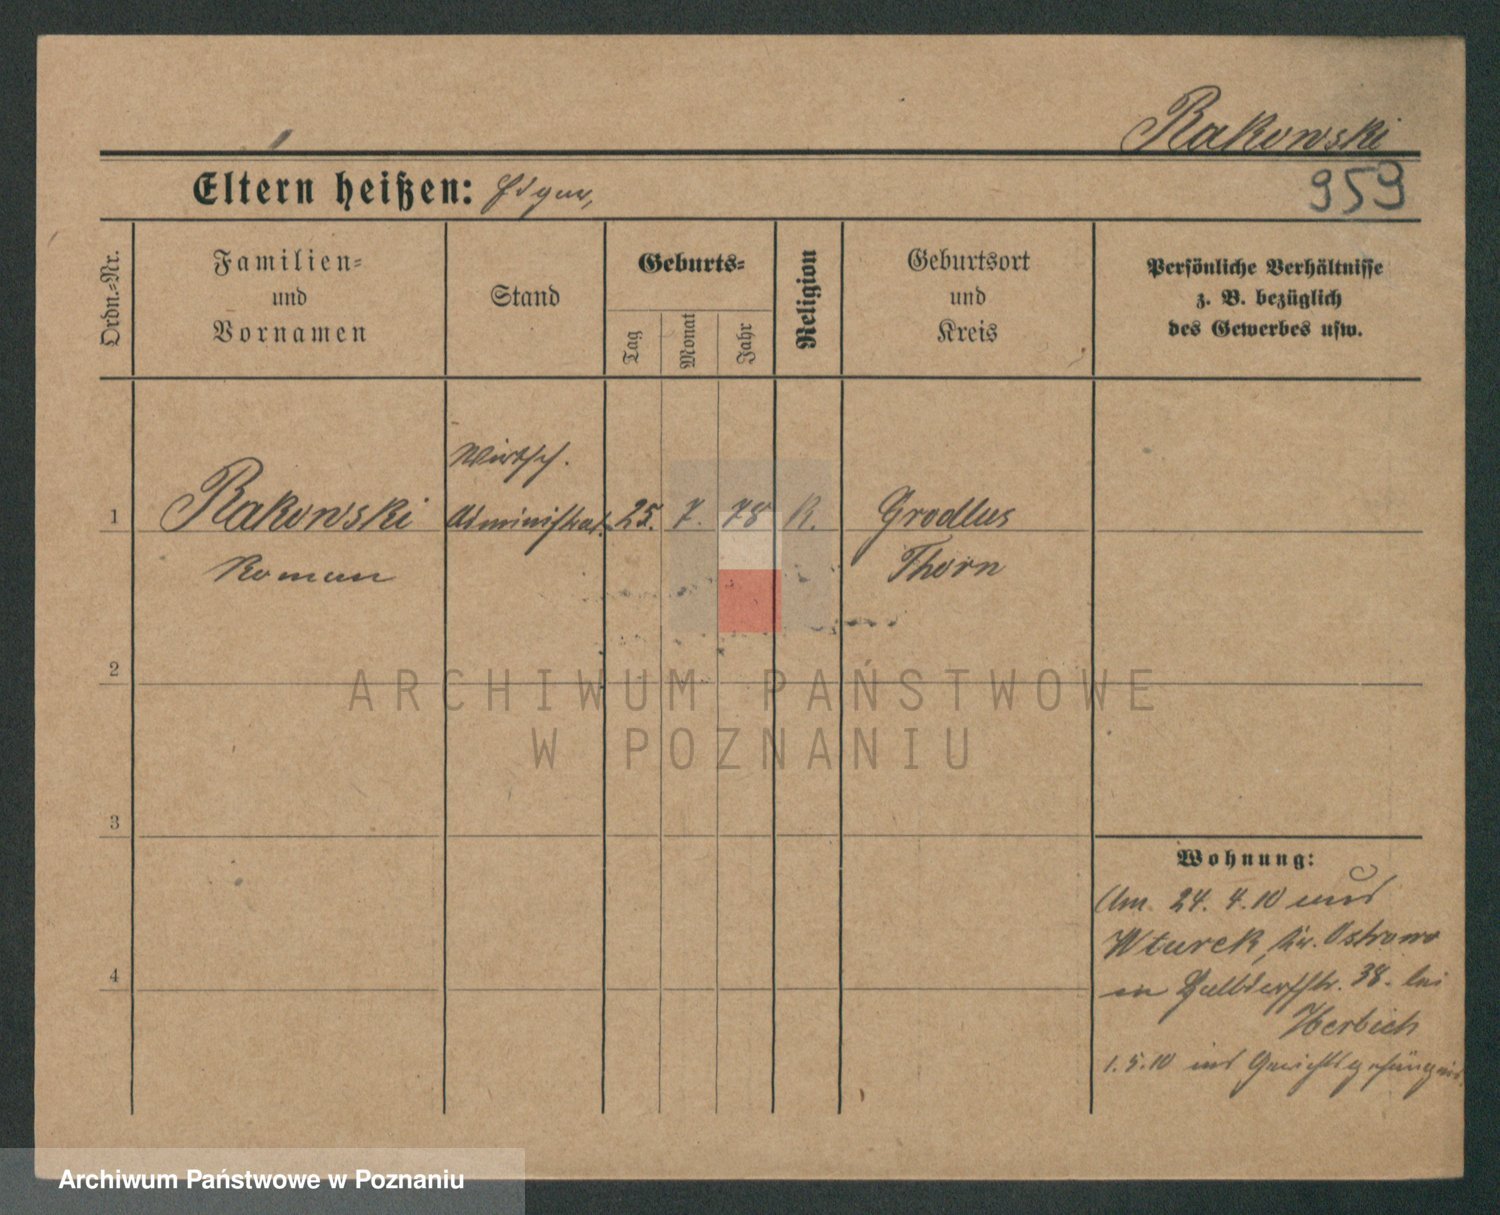 Rakowski
Eltern heißen:
959
Ordn.-Nr.
Familien-
und
Vornamen
Stand
Geburts-
Tag
Monat
Jahr
Religion
Geburtsort
und
Kreis
Persönliche Verhältnisse
z. B. bezüglich
des Gewerbes usw.
1
Rakowski
Roman
Wirtsch.
Administrat.
25.
7.
78
K.
Grodlus
Thorn
2
3
4
Wohnung:
Am 24. 4. 10 aus
Wturek, Kr. Ostrowo
in 38. bei
Herbich
1. 5. 10 ins Gerichtsgefängnis
ARCHIWUM PAŃSTWOWE
W POZNANIU
Archiwum Państwowe w Poznaniu